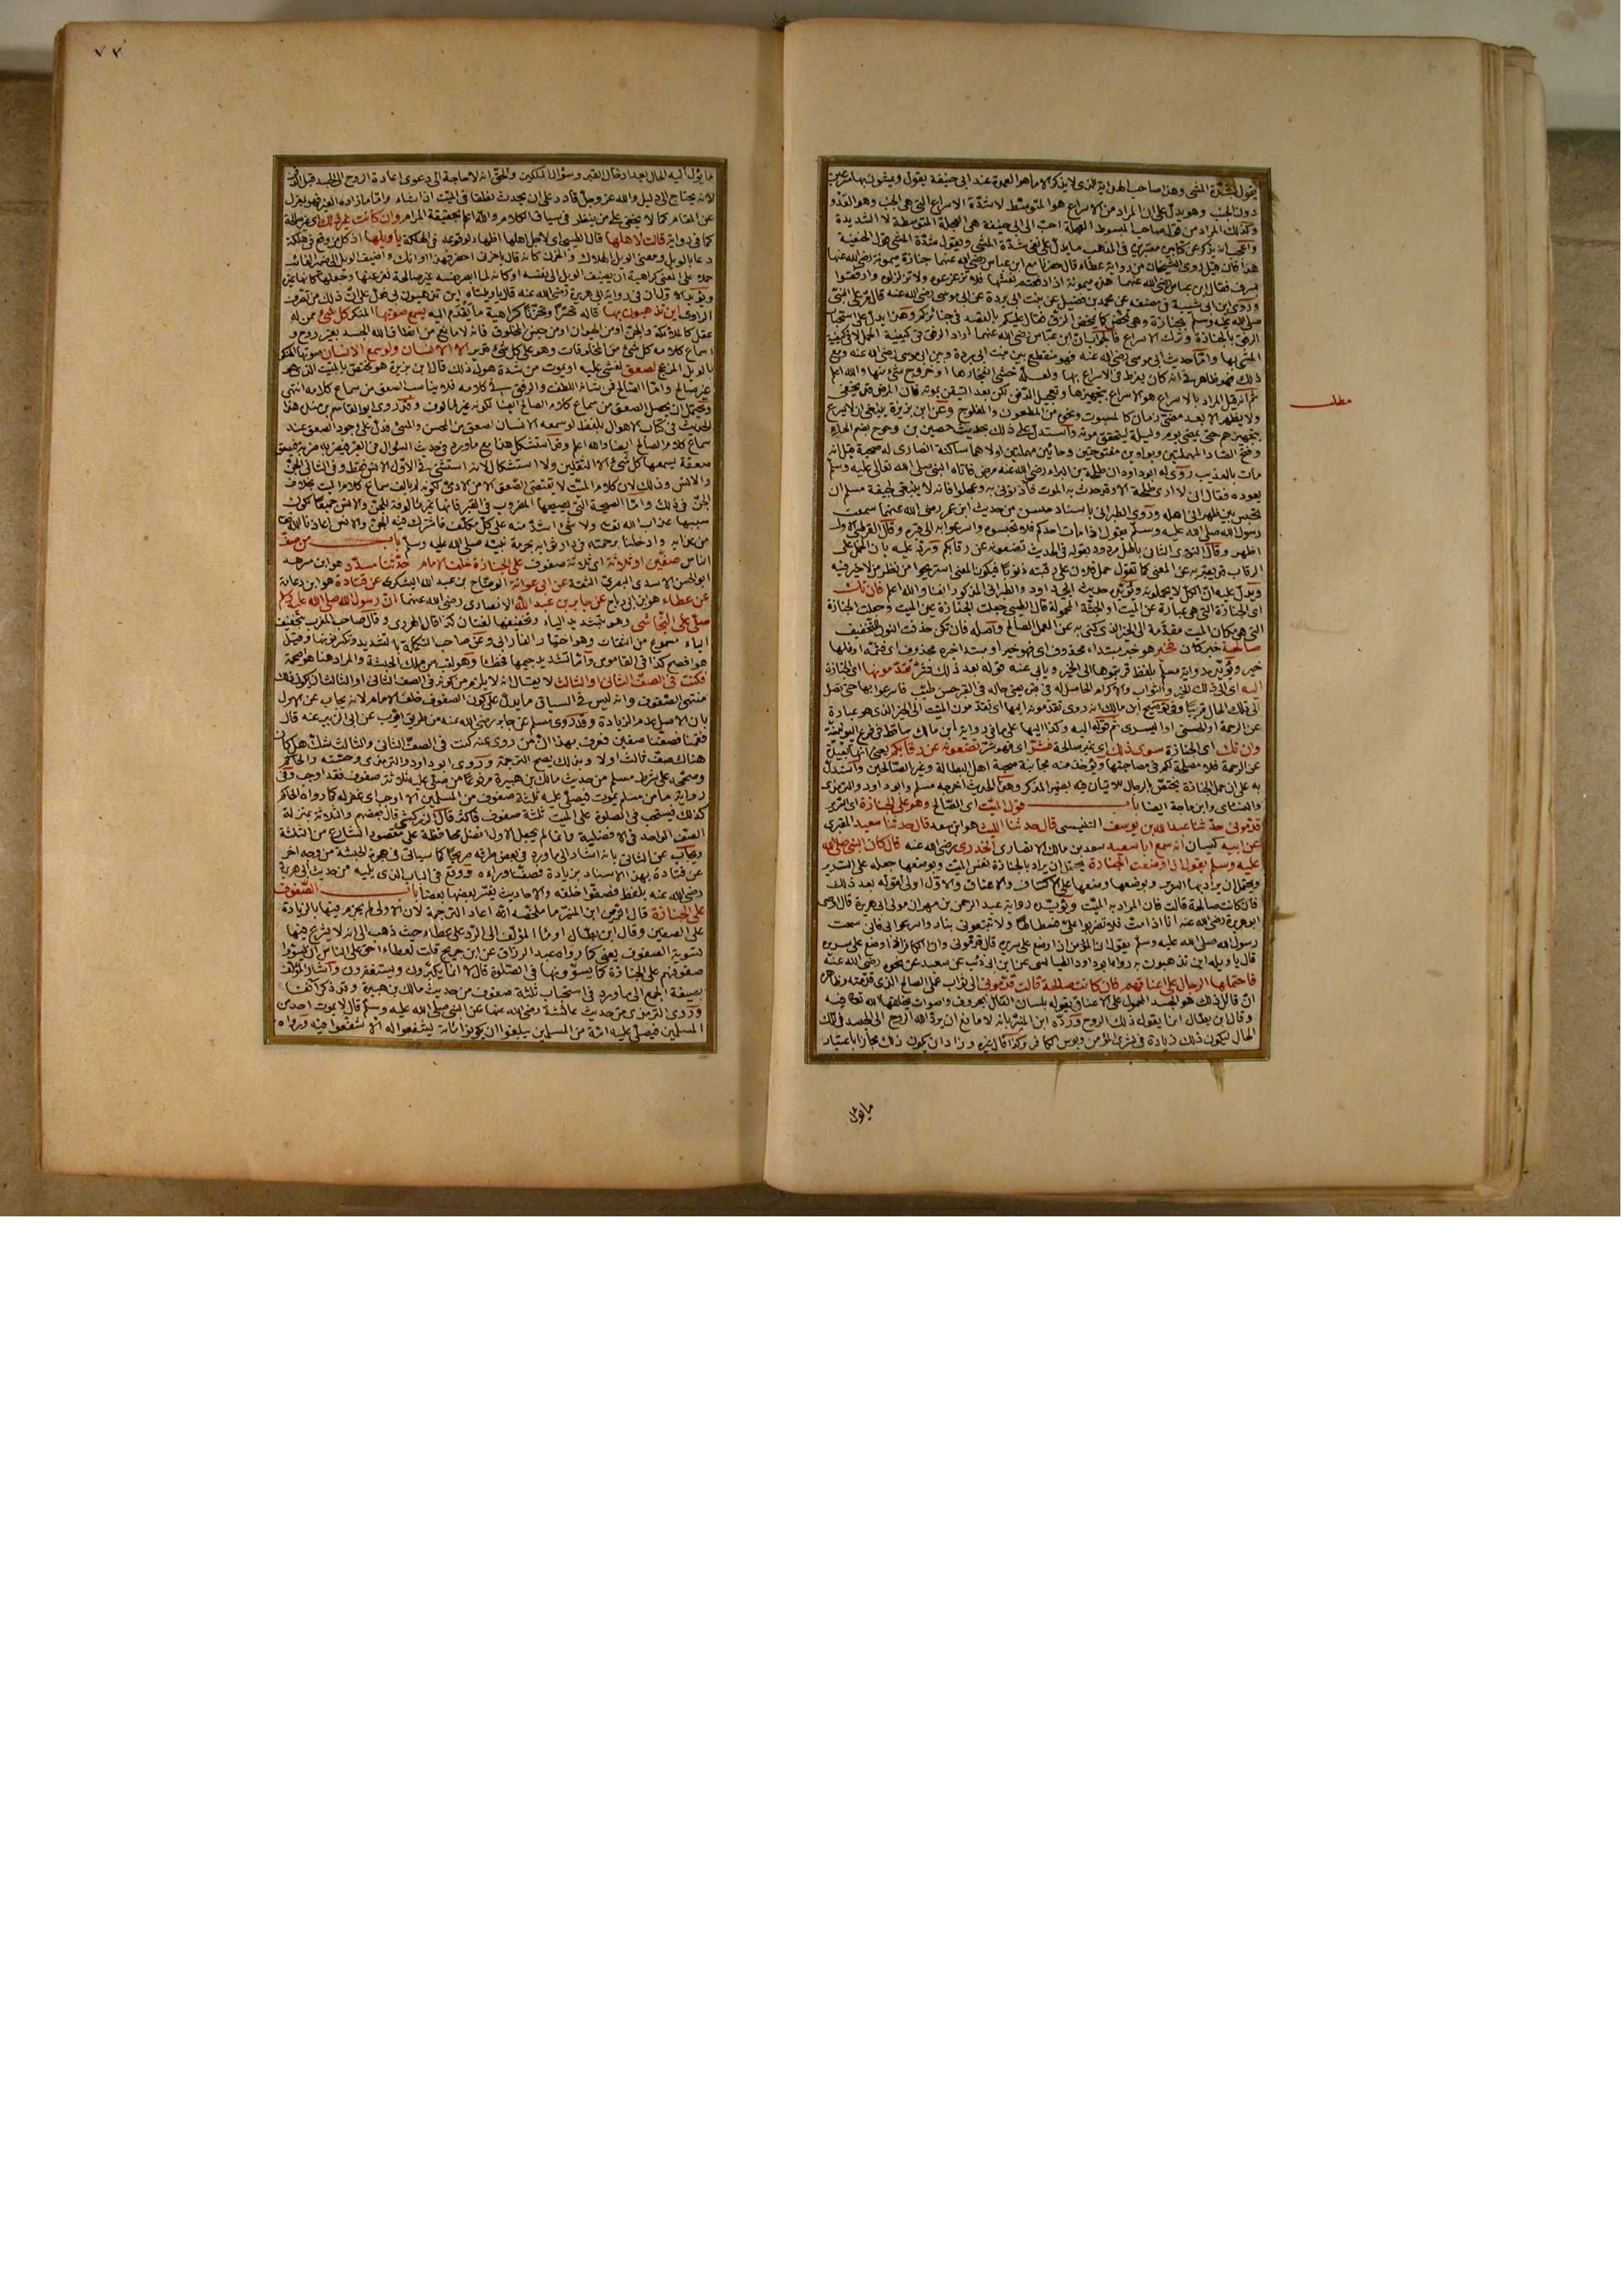 يقول بشدة المشي وهذا صاحب الهداية الذي لا يذكر الا ما هو العمدة عند ابي حنيفة يقول ويمشون بها مسرعين
دون الخبب وهو يدل على ان المراد من الاسراع هو المتوسط لا شدة الاسراع التي هي الخبب وهو العدو
وكذلك المراد من قول صاحب المبسوط العجلة احب الى ابي حنيفة هي العجلة المتوسطة لا الشديدة
هذا فان قيل روى الشيخان من رواية عطاء قال حضرنا مع ابن عباس رضي الله عنهما جنازة ميمونة رضي الله عنها
بسرف فقال ابن عباس رضي الله عنهما هذه ميمونة اذا رفعتم نعشها فلا تزعزعوه ولا تزلزلوه وارفقوا
وروى ابن ابي شيبة في مصنفه عن محمد بن فضيل عن بنت ابي بردة عن ابي موسى رضي الله عنه قال مر على النبي
صلى الله عليه وسلم بجنازة وهي تمخض كما يمخض الزق فقال عليكم بالقصد في جنائزكم وهذا يدل على استحباب
الرفق بالجنازة وترك الاسراع فالجواب ان ابن عباس رضي الله عنهما اراد الرفق في كيفية الحمل لا في كيفية
المشي بها واما حديث ابي موسى رضي الله عنه فهو منقطع بين بنت ابي بردة وبين ابي موسى رضي الله عنه ومع
ذلك فهو ظاهر في انه كان يفرط في الاسراع بها ولعله خشي انفجارها او خروج شيء منها والله اعلم
مطلب
ثم انه قيل المراد بالاسراع هو الاسراع بتجهيزها وتعجيل الدفن لكن بعد التيقن بموته فان المرض
ولا يظهر الا بعد مضي زمان كالمسبوت ونحوه من المطعون والمفلوج وعن ابن بزيزة ينبغي ان لا يسرع
بتجهيزهم حتى يمضي يوم وليلة ليتحقق موته واستدل على ذلك بحديث حصين بن وحوح بضم الحاء
وفتح الصاد المهملتين وبواوين مفتوحتين وحائين مهملتين اولاهما ساكنة انصاري له صحبة قيل انه
مات بالعذيب روى له ابو داود ان طلحة بن البراء رضي الله عنه مرض فاتاه النبي صلى الله تعالى عليه وسلم
يعوده فقال اني لا ارى طلحة الا وقد حدث به الموت فآذنوني به وعجلوا فانه لا ينبغي لجيفة مسلم ان
تحبس بين ظهراني اهله وروى الطبراني باسناد حسن من حديث ابن عمر رضي الله عنهما سمعت
رسول الله صلى الله عليه وسلم يقول اذا مات احدكم فلا تحبسوه واسرعوا به الى قبره وقال القرطبي الاول
اظهر وقال النووي الثاني باطل مردود بقوله في الحديث تضعونه عن رقابكم ورد عليه بان الحمل على
الرقاب قد يعبر به عن المعنى كما تقول حمل فلان على رقبته ذنوبا فيكون المعنى استريحوا من نظر من لا خير فيه
ويدل عليه ان الكل لا يحملونه ويؤيده حديث ابي داود والطبراني المذكور انفا والله اعلم فان تك
اي الجنازة التي هي عبارة عن الميت او الجثة المحمولة قال الطيبي جعلت الجنازة عين الميت وجعلت الجنازة
التي هي مكان الميت مقدمة الى الخير الذي كنى به عن العمل الصالح واصله فان تكن حذفت النون للتخفيف
صالحة خبر كان فخير هو خبر مبتداء محذوف اي فهو خير او مبتدا خبره محذوف اي فثمه او فلها
خير ويؤيده رواية مسلم بلفظ قربتموها الى الخير وياتي عنه قوله بعد ذلك فشر تقدمونها اي الجنازة
اليه اي الى ذلك الخير والثواب والاكرام الحاصل له في قبره يعني حاله في القبر حسن طيب فاسرعوا بها حتى تصل
الى تلك الحال قريبا وفي توضيح ابن مالك انه روى تقدمونه اليها اي تقدمون الميت الى الخير الذي هو عبارة
وان تك اي الجنازة سوى ذلك اي غير صالحة فشر اي فهو شر تضعونه عن رقابكم يعني انها بعيدة
عن الرحمة فلا مصلحة لكم في مصاحبتها ويؤخذ منه مجانبة صحبة اهل البطالة وغير الصالحين واستدل
به على ان حمل الجنازة يختص بالرجال للاتيان فيه بضمير المذكر وهذا الحديث اخرجه مسلم وابو داود والترمذي
والنسائي وابن ماجة ايضا باب قول الميت اي الصالح وهو على الجنازة اي السرير
قدموني حدثنا عبد الله بن يوسف التنيسي قال حدثنا الليث هو ابن سعد قال حدثنا سعيد المقبري
عن ابيه كيسان انه سمع ابا سعيد سعد بن مالك الانصاري الخدري رضي الله عنه قال كان النبي صلى الله
عليه وسلم يقول اذا وضعت الجنازة يحتمل ان يراد بالجنازة نفس الميت وبوضعها جعله على السرير
ويحتمل ان يراد بها السرير وبوضعها وضعها على الاكتاف والاعناق والاول اولى لقوله بعد ذلك
فان كانت صالحة قالت فان المراد به الميت ويؤيده رواية عبد الرحمن بن مهران مولى ابي هريرة قال
ابو هريرة رضي الله عنه اذا انا مت فلا تضربوا علي فسطاطا ولا تتبعوني بنار واسرعوا بي فاني سمعت
رسول الله صلى الله عليه وسلم يقول ان المؤمن اذا وضع على سريره قال قدموني وان الكافر اذا وضع على سريره
قال يا ويله اين تذهبون به رواه ابو داود الطيالسي عن ابن ابي ذئب عن سعيد عن نحوه رضي الله عنه
فاحتملها الرجال على اعناقهم فان كانت صالحة قالت قدموني الى ثواب عملي الصالح الذي قدمته وظاهره
ان قائل ذلك هو الجسد المحمول على الاعناق يقوله بلسان القال بحروف واصوات يخلقها الله تعالى فيه
وقال ابن بطال انما يقول ذلك الروح ورده ابن المنير بانه لا مانع ان يرد الله الروح الى الجسد في تلك
الحال ليكون ذلك زيادة في بشرى المؤمن وبؤس الكافر وكذا قال غيره وزاد ان يكون ذلك مجازا باعتبار
ما يؤل
٧٢
ما يؤل اليه الحال بعد ادخال القبر وسؤال الملكين والحق انه لا حاجة الى دعوى اعادة الروح الى الجسد قبل الدفن
لانه يحتاج الى دليل والله عز وجل قادر على ان يحدث نطقا في الميت اذا شاء واما ما زاده الغير فهو بمعزل
عن المقام كما لا يخفى على من ينظر في سياق الكلام والله اعلم بحقيقة المرام وان كانت غير ذلك اي غير صالحة
كما في رواية قالت لاهلها قال الطيبي اي لاجل اهلها اظهارا لوقوعه في الهلكة يا ويلها اذ كل من وقع في هلكة
دعا بالويل ومعنى الويل الهلاك والحزن كانه قال يا حزني احضر فهذا اوانك واضيف الويل الى ضمير الغائب
حملا على المعنى كراهية ان يضيف الويل الى نفسه او كانه لما ابصر نفسه غير صالحة نفر عنها وجعلها كانها غيره
ويؤيد الاول ان في رواية ابي هريرة رضي الله عنه قال يا ويلتاه اين تذهبون بي فدل على ان ذلك من تصرف
الراوي اين تذهبون بها قاله تحسرا وتحزنا كراهية ما يقدم اليه يسمع صوتها المنكر كل شيء ممن له
عقل كالملائكة والجن او من الحيوان او من جميع المخلوق فانه لا مانع من انطاق الله الجسد بغير روح و
اسماع كلامه كل شيء من المخلوقات وهو على كل شيء قدير الا الانسان ولو سمع الانسان صوتها المنكر
بالويل المزعج لصعق لغشي عليه او يموت من شدة هول ذلك قال ابن بزيزة هو مختص بالميت الذي هو
غير صالح واما الصالح فمن شانه اللطف والرفق في كلامه فلا يناسب الصعق من سماع كلامه انتهى
ويحتمل ان يحصل الصعق من سماع كلام الصالح ايضا لكونه غير مالوف وقد روى ابو القاسم بن منده هذا
الحديث في كتاب الاهوال بلفظ لو سمعه الانسان لصعق من المحسن والمسيء فدل على وجود الصعق عند
سماع كلام الصالح ايضا والله اعلم وقد استشكل هذا مع ما ورد في حديث السؤال في القبر فيضربه ضربة فيصعق
صعقة يسمعها كل شيء الا الثقلين ولا استشكال لانه استثنى في الاول الانس فقط وفي الثاني الجن
والانس وذلك لان كلام الميت لا يقتضي الصعق الا من الآدمي لكونه لم يالف سماع كلام الميت بخلاف
الجن في ذلك واما الصيحة التي يصيحها المضروب في القبر فانها غير مالوفة للجن والانس جميعا لكون
سببها عذاب الله تعالى ولا شيء اشد منه على كل مكلف فاشترك فيه الجن والانس اعاذنا الله تعالى
من عذابه وادخلنا برحمته في دار ثوابه بحرمة نبيه صلى الله عليه وسلم باب من صف
الناس صفين او ثلاثة اي ثلاثة صفوف على الجنازة خلف الامام حدثنا مسدد هو ابن مسرهد
ابو الحسن الاسدي البصري الثقة عن ابي عوانة الوضاح بن عبد الله اليشكري عن قتادة هو ابن دعامة
عن عطاء هو ابن ابي رباح عن جابر بن عبد الله الانصاري رضي الله عنهما ان رسول الله صلى الله عليه وسلم
صلى على النجاشي وهو بتشديد الياء وتخفيفها لغتان كذا قال الجزري وقال صاحب المغرب بتخفيف
الياء مسموع من الثقات وهو اختيار الفارابي وعن صاحب التكملة بالتشديد وتكسر نونها وقيل
هو افصح كذا في القاموس واما تشديد جيمها فخطاء وهو لقب من ملك الحبشة والمراد هنا هو اصحمة
فكنت في الصف الثاني او الثالث لا يقال انه لا يلزم من كونه في الصف الثاني او الثالث ان يكون ذلك
منتهى الصفوف وانه ليس في السياق ما يدل على كون الصفوف خلف الامام لانه يجاب عن الاول
بان الاصل عدم الزيادة وقد روى مسلم عن جابر رضي الله عنه من طريق ايوب عن ابي الزبير عنه قال
فقمنا فصفنا صفين فعرف بهذا ان من روى عنه كنت في الصف الثاني او الثالث شك هل كان
هناك صف ثالث اولا وبذلك يصح الترجمة وروى ابو داود والترمذي وحسنه والحاكم
وصححه على شرط مسلم من حديث مالك بن هبيرة مرفوعا من صلى عليه ثلاثة صفوف فقد اوجب وفي
رواية ما من مسلم يموت فيصلي عليه ثلثة صفوف من المسلمين الا اوجب اي غفر له كما رواه الحاكم
كذلك فيستحب في الصلوة على الميت ثلثة صفوف فاكثر قال الزركشي قال بعضهم والثلاثة بمنزلة
الصف الواحد في الافضلية وانما لم يجعل الاول افضل محافظة على مقصود الشارع من الثلثة
ويجاب عن الثاني بانه اشار الى ما ورد في بعض طرقه صريحا كما سياتي في هجرة الحبشة من وجه اخر
عن قتادة بهذا الاسناد بزيادة فصفنا وراءه ووقع في الباب الذي يليه من حديث ابي هريرة
رضي الله عنه بلفظ فصفوا خلفه والاحاديث يفسر بعضها بعضا باب الصفوف
على الجنازة قال الزين ابن المنير ما ملخصه انه اعاد الترجمة لان الاولى لم يجزم فيها بالزيادة
على الصفين وقال ابن بطال اومأ المؤلف الى الرد على عطاء حيث ذهب الى انه لا يشرع فيها
تسوية الصفوف يعني كما رواه عبد الرزاق عن ابن جريج قلت لعطاء احق على الناس ان يسووا
صفوفهم على الجنازة كما يسوونها في الصلوة قال لا انما يكبرون ويستغفرون واشار المؤلف
بصيغة الجمع الى ما ورد في استحباب ثلثة صفوف من حديث مالك بن هبيرة وقد ذكر آنفا
وروى الترمذي من حديث عائشة رضي الله عنها عن النبي صلى الله عليه وسلم قال لا يموت احد من
المسلمين فيصلي عليه امة من المسلمين يبلغوا ان يكونوا مائة ليشفعوا له الا شفعوا فيه ورواه